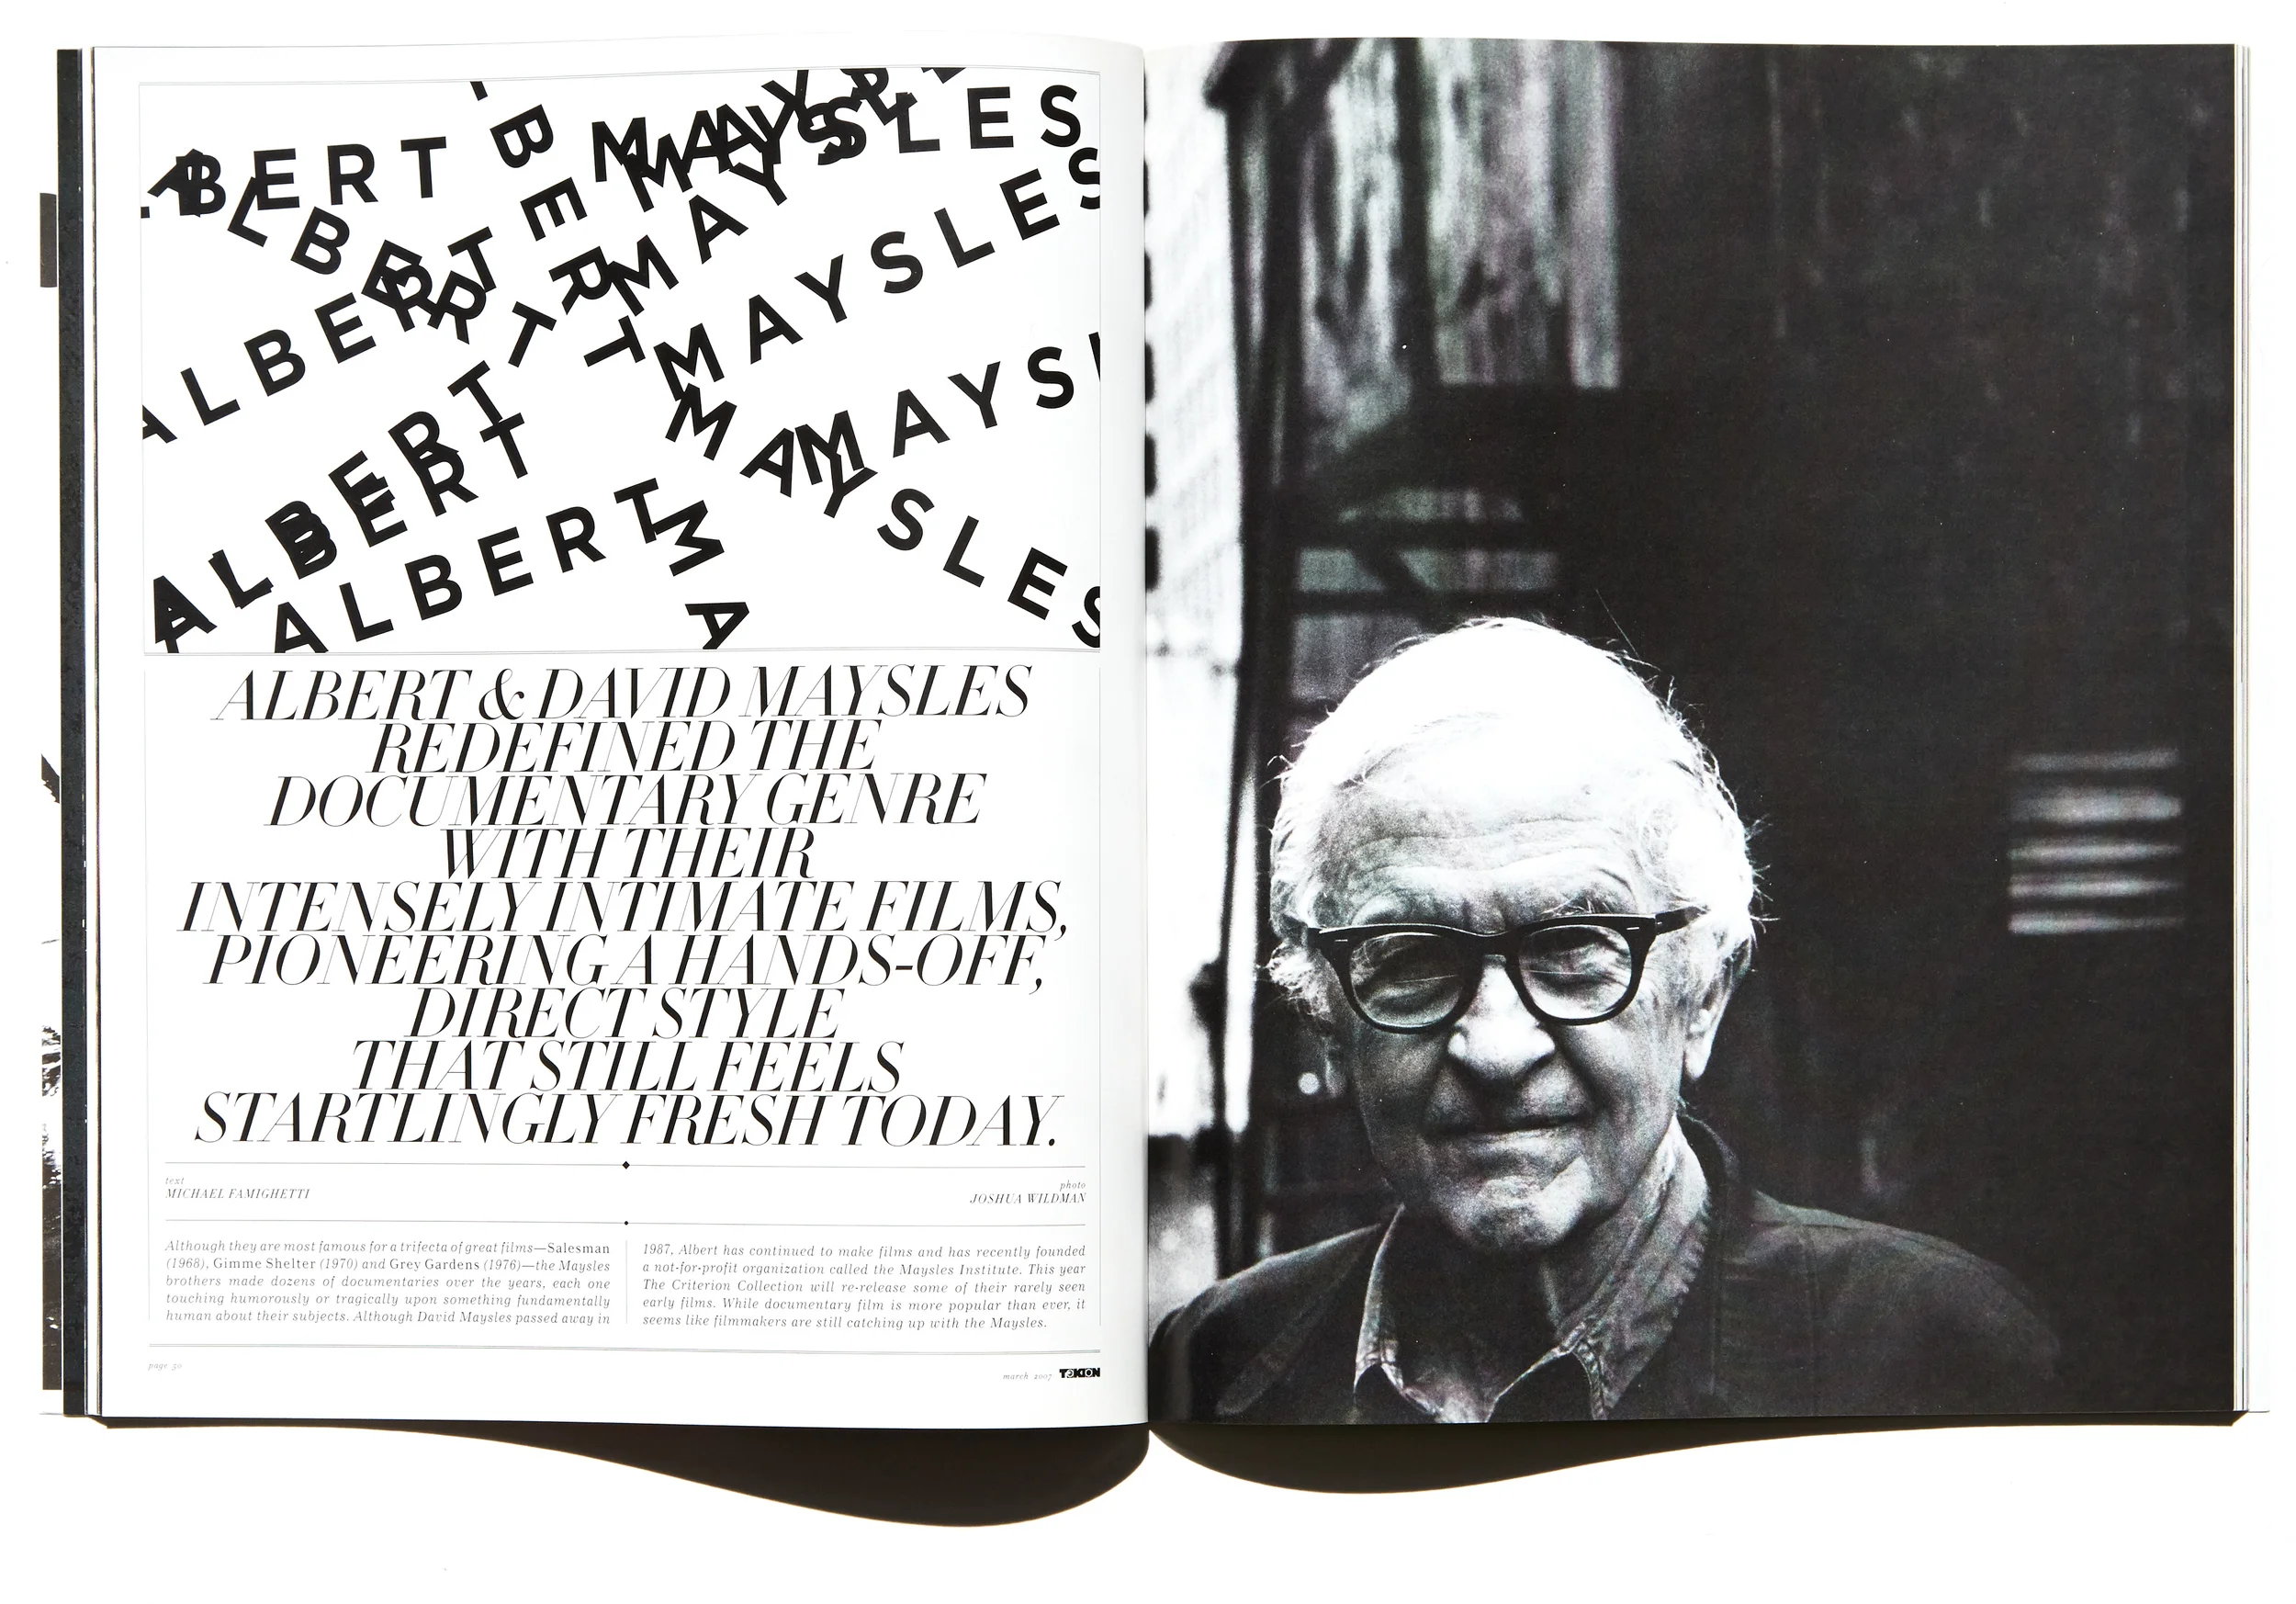 ALBERT
ALBERT
ALBERT
ALBERT
ALBERT
ALBERT
ALBERT
MAYSLES
MAYSLES
MAYSLES
MAYSLES
MAYSL
MAYSLES
MA
ALBERT & DAVID MAYSLES
REDEFINED THE
DOCUMENTARY GENRE
WITH THEIR
INTENSELY INTIMATE FILMS,
PIONEERING A HANDS-OFF,
DIRECT STYLE
THAT STILL FEELS
STARTLINGLY FRESH TODAY.
text
MICHAEL FAMIGHETTI
photo
JOSHUA WILDMAN
Although they are most famous for a trifecta of great films—Salesman
(1968), Gimme Shelter (1970) and Grey Gardens (1976)—the Maysles
brothers made dozens of documentaries over the years, each one
touching humorously or tragically upon something fundamentally
human about their subjects. Although David Maysles passed away in
1987, Albert has continued to make films and has recently founded
a not-for-profit organization called the Maysles Institute. This year
The Criterion Collection will re-release some of their rarely seen
early films. While documentary film is more popular than ever, it
seems like filmmakers are still catching up with the Maysles.
page 50
march 2007 TOKION